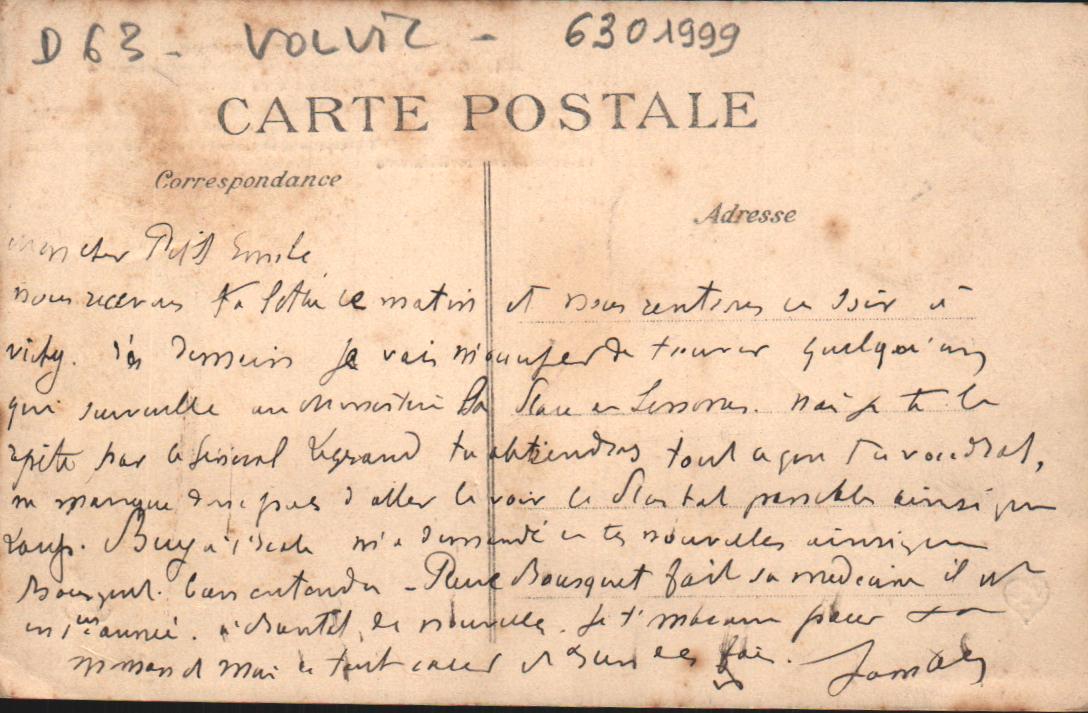 D63 - VOLVIC - 6301999
CARTE POSTALE
Correspondance
Adresse
Mon cher Petit Emile
nous recevons ta lettre ce matin et nous rentrons ce soir à
Vichy. Dès demain je vais m'occuper de trouver quelqu'un
qui au ministère la. Mais je te le
répète par le Général Legrand tu obtiendras tout ce que tu voudras,
ne manque donc pas d'aller le voir le plus tôt possible ainsi que
à l'école m'a demandé de tes nouvelles ainsi que
Bousquet. bien entendu - Pierre Bousquet fait sa médecine il est
en 1ère année. à bientôt de nouvelles. Je t'embrasse pour ta
maman et moi de tout cœur et bien des fois.